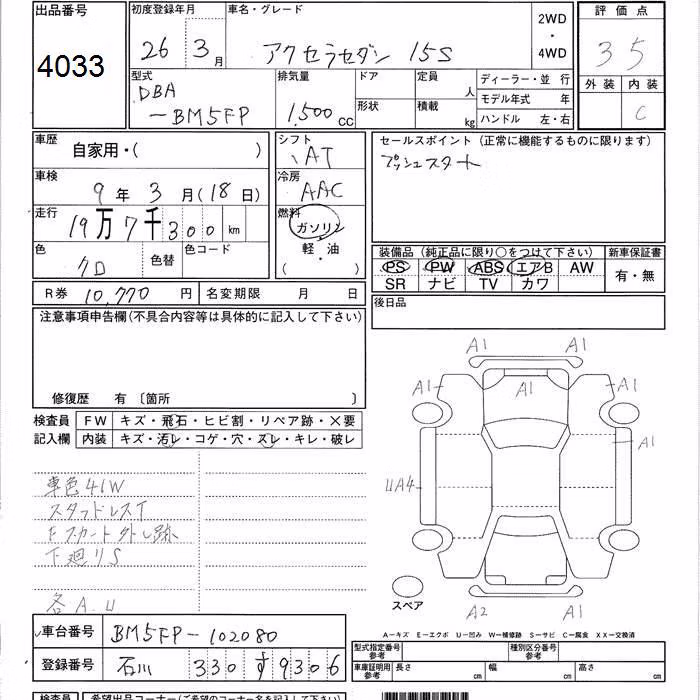 出品番号
4033
初度登録年月
26年3月
車名・グレード
アクセラセダン 15S
2WD
・
4WD
評価点
3 5
外装 内装
C
型式
DBA
-BM5FP
排気量
1,500cc
ドア
形状
定員 人
積載 kg
ディーラー・並行
モデル年式 年
ハンドル 左・右
車歴
自家用・( )
シフト
AT
セールスポイント (正常に機能するものに限ります)
プッシュスタート
車検
9年3月(18日)
冷房
AAC
走行
19万7千300km
燃料
ガソリン
軽・油
( )
色
クロ
色替
色コード
装備品 (純正品に限り○をつけて下さい)
PS PW ABS エアB AW
SR ナビ TV カワ
新車保証書
有・無
R券 10,770円
名変期限 月 日
後日品
注意事項申告欄(不具合内容等は具体的に記入して下さい)
修復歴 有 〔箇所 〕
検査員
記入欄
FW キズ・飛石・ヒビ割・リペア跡・×要
内装 キズ・汚レ・コゲ・穴・スレ・キレ・破レ
車色41W
スタッドレスT
Fスカート外し跡
下廻りS
各A.U
A1 A1
A1 A1 A1
A1
UA4
A2 A1
スペア
A-キズ E-エクボ U-凹み W-補修跡 S-サビ C-腐食 XX-交換済
車台番号 BM5FP-102080
登録番号 石川 330 す 9306
型式指定番号
参考
種別区分番号
参考
車庫証明用
参考
長さ cm 幅 cm 高さ cm
検査員
希望出品コーナー(ご希望のコーナー名を記入下さい)